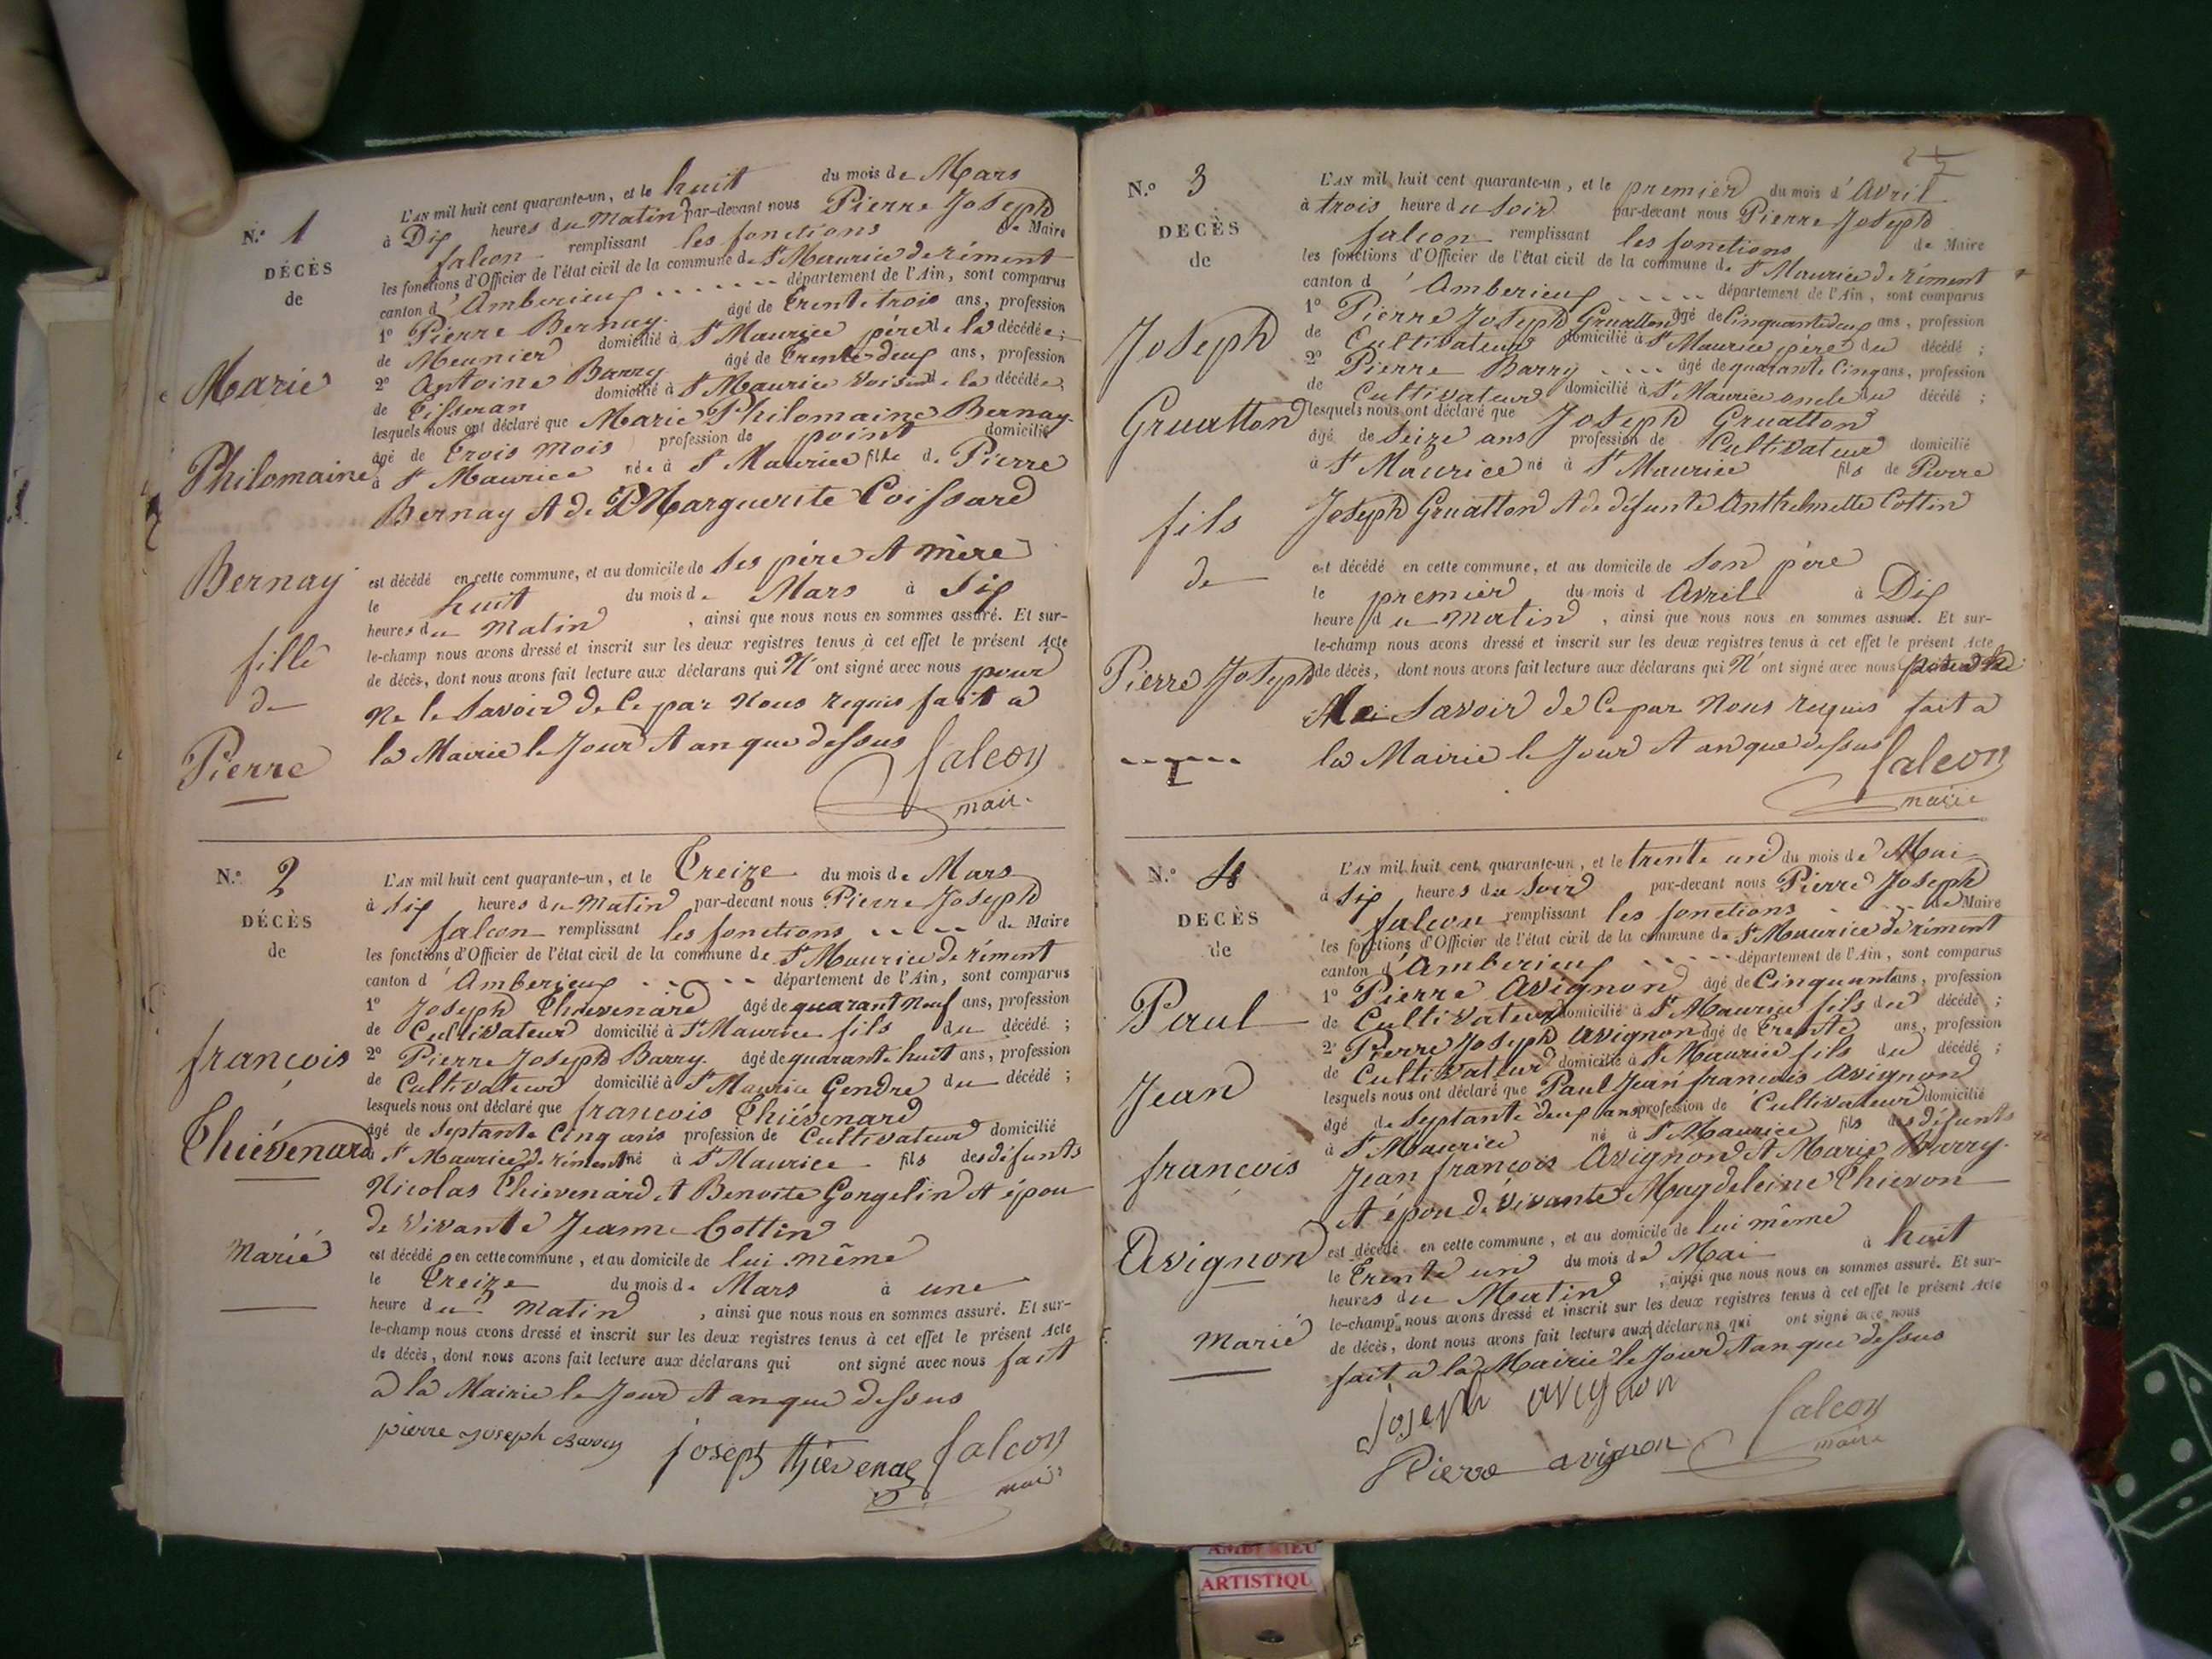 N.° 1
DÉCÈS
de
Marie
Philomaine
Bernay
fille
de
Pierre
L'AN mil huit cent quarante-un, et le huit du mois de Mars
à Dix heures du Matin par-devant nous Pierre Joseph
falcon remplissant les fonctions de Maire
les fonctions d'Officier de l'état civil de la commune de St Maurice de rément
canton d'Amberieux département de l'Ain, sont comparus
1° Pierre Bernay âgé de trente trois ans, profession
de Meunier domicilié à St Maurice père de la décédée;
2° Antoine Barry âgé de trente deux ans, profession
de Tisseran domicilié à St Maurice voisin de la décédée;
lesquels nous ont déclaré que Marie Philomaine Bernay
âgé de trois mois profession de point domicilié
à St Maurice née à St Maurice fille de Pierre
Bernay et de Marguerite Coissard
est décédé en cette commune, et au domicile de ses père et mère
le huit du mois de Mars à six
heures du Matin, ainsi que nous nous en sommes assuré. Et sur-
le-champ nous avons dressé et inscrit sur les deux registres tenus à cet effet le présent Acte
de décès, dont nous avons fait lecture aux déclarans qui N'ont signé avec nous pour
ne le savoir de ce par nous requis fait a
la Mairie le jour et an que dessus
falcon
maire
N.° 2
DÉCÈS
de
françois
Thiévenard
Marié
L'AN mil huit cent quarante-un, et le Treize du mois de Mars
à six heures du Matin par-devant nous Pierre Joseph
falcon remplissant les fonctions de Maire
les fonctions d'Officier de l'état civil de la commune de St Maurice de rément
canton d'Amberieux département de l'Ain, sont comparus
1° Joseph Thievenard âgé de quarant neuf ans, profession
de Cultivateur domicilié à St Maurice fils du décédé;
2° Pierre Joseph Barry âgé de quarante huit ans, profession
de Cultivateur domicilié à St Maurice Gendre du décédé;
lesquels nous ont déclaré que françois Thiévenard
âgé de septante cinq ans profession de Cultivateur domicilié
à St Maurice de rément né à St Maurice fils des défunts
Nicolas Thievenard et Benoite Gorgelin et épou
de vivante Jeanne Cottin
est décédé en cette commune, et au domicile de lui même
le Treize du mois de Mars à une
heure du Matin, ainsi que nous nous en sommes assuré. Et sur-
le-champ nous avons dressé et inscrit sur les deux registres tenus à cet effet le présent Acte
de décès, dont nous avons fait lecture aux déclarans qui ont signé avec nous fait
a la Mairie le jour et an que dessus
pierre joseph Barry joseph thievenar falcon
maire
N.° 3
DÉCÈS
de
Joseph
Gruatton
fils
de
Pierre Joseph
L'AN mil huit cent quarante-un, et le premier du mois d'Avril
à trois heure du soir par-devant nous Pierre Joseph
falcon remplissant les fonctions de Maire
les fonctions d'Officier de l'état civil de la commune de St Maurice de rément
canton d'Amberieux département de l'Ain, sont comparus
1° Pierre Joseph Gruatton âgé de Cinquante deux ans, profession
de Cultivateur domicilié à St Maurice père du décédé;
2° Pierre Barry âgé de quarante Cinq ans, profession
de Cultivateur domicilié à St Maurice oncle du décédé;
lesquels nous ont déclaré que Joseph Gruatton
âgé de seize ans profession de Cultivateur domicilié
à St Maurice né à St Maurice fils de Pierre
Joseph Gruatton et de défunte Anthelmette Cottin
est décédé en cette commune, et au domicile de son père
le premier du mois d Avril à Dix
heure du matin, ainsi que nous nous en sommes assuré. Et sur-
le-champ nous avons dressé et inscrit sur les deux registres tenus à cet effet le présent Acte
de décès, dont nous avons fait lecture aux déclarans qui N'ont signé avec nous
savoir de ce par nous requis fait a
la Mairie le jour et an que dessus
falcon
maire
N.° 4
DÉCÈS
de
Paul
Jean
françois
Avignon
Marié
L'AN mil huit cent quarante-un, et le trente un du mois de Mai
à six heures du soir par-devant nous Pierre Joseph
falcon remplissant les fonctions de Maire
les fonctions d'Officier de l'état civil de la commune de St Maurice de rément
canton d'Amberieux département de l'Ain, sont comparus
1° Pierre Avignon âgé de Cinquant ans, profession
de Cultivateur domicilié à St Maurice fils du décédé;
2° Pierre Joseph Avignon âgé de trente ans, profession
de Cultivateur domicilié à St Maurice fils du décédé;
lesquels nous ont déclaré que Paul Jean francois Avignon
âgé de septante deux ans profession de Cultivateur domicilié
à St Maurice né à St Maurice fils des défunts
Jean françois Avignon et Marie Barry
et épou de vivante Magdeleine Thievon
est décédé en cette commune, et au domicile de lui même
le trente un du mois de Mai à huit
heures du Matin, ainsi que nous nous en sommes assuré. Et sur-
le-champ nous avons dressé et inscrit sur les deux registres tenus à cet effet le présent Acte
de décès, dont nous avons fait lecture aux déclarans qui ont signé avec nous
fait a la Mairie le jour et an que dessus
joseph avignon falcon
Pierre avignon maire
AMBERIEU
ARTISTIQU